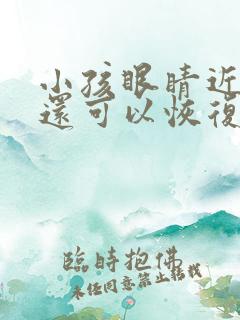 小孩眼睛近
還可以恢復
臨時抱佛
未经同意禁止转载